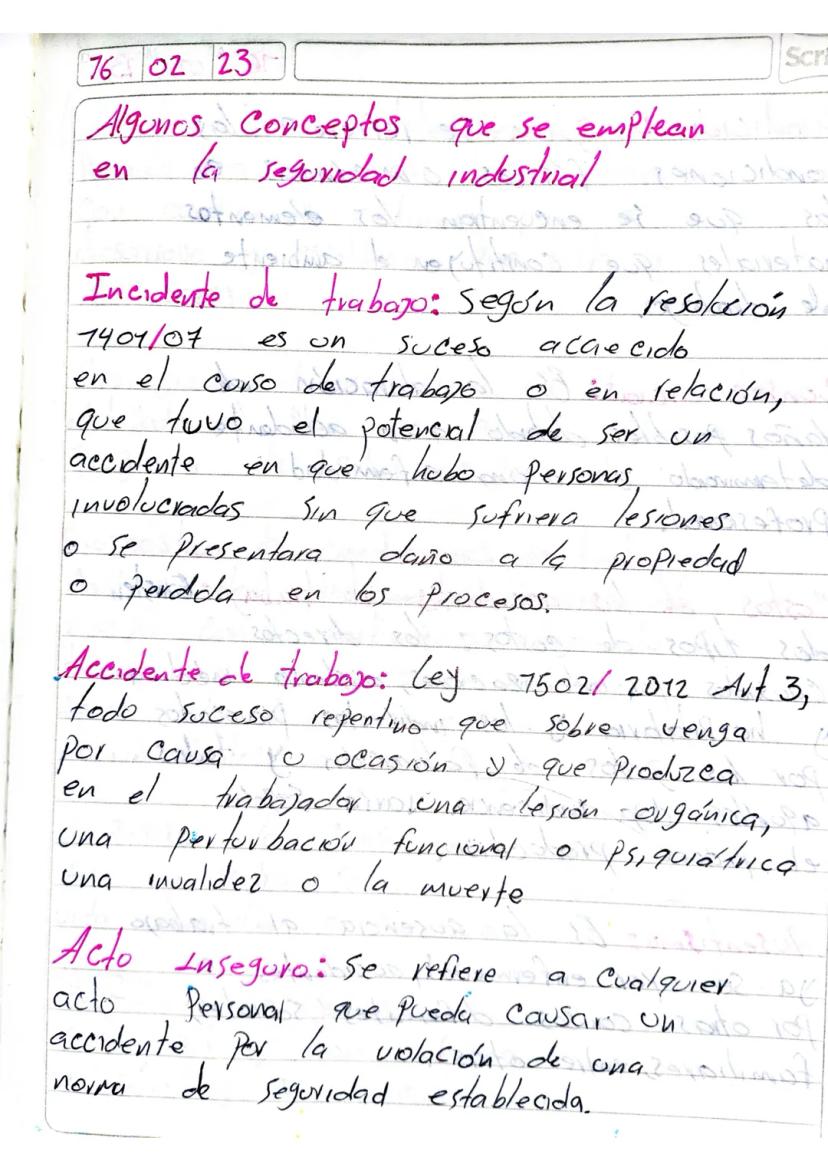 16 02 23
Scri
Algunos Conceptos que se emplean
en la seguridad industrial
Incidente de trabajo: Según la resolución
1401/07 es un suceso acaecido
en el curso de trabajo o en relación,
que tuvo el potencial de ser un
accidente en que hubo personas
involucradas sin que sufriera lesiones
o se presentara daño a la propiedad
o perdda en los procesos.
Accidente de trabajo: Ley 1502/2012 Art 3,
todo suceso repentino que sobre venga
por causa u ocasión y que produzca
en el trabajador una lesión orgánica,
una perturbación funcional o psiquiátrica
una invalidez o la muerte
Acto Inseguro: Se refiere a cualquier
acto Personal que pueda causar un
accidente por la violación de una
norma de seguridad establecida.